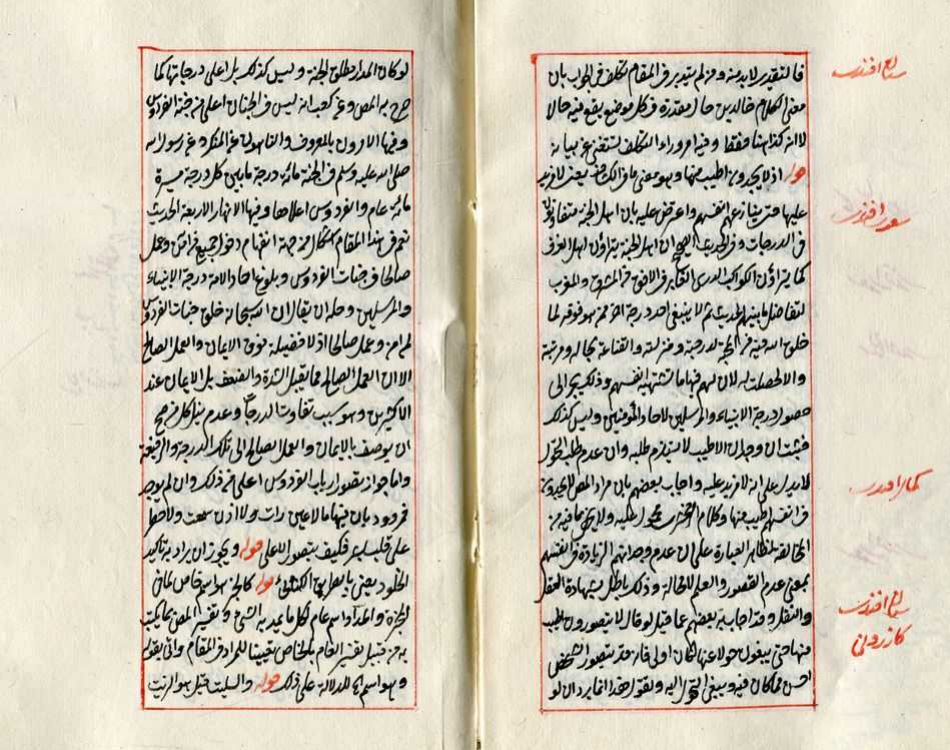 فالتقدير لابد منه ومن لم يتدبر في المقام تكلف في الجواب بان
معنى الكلام خالدين حال مقدرة في كل موضع يقع فيه حالا
لا انه كذا ههنا فقط وفيه امر وراء التكلف تستغني عن بيانه
قوله اذ لا يجدون اطيب منها وهو معنى ما في الكشاف يعني لا مزيد
عليها حتى ينازعهم انفسهم واعترض عليه بان اهل الجنة متفاوتون
في الدرجات وفي الحديث الصحيح ان اهل الجنة يتراؤن اهل الغرف
كما يتراؤن الكوكب الدري الغابر في الافق من المشرق والمغرب
لتفاضل ما بينهم الحديث ثم لا ينبغي احد درجة اخر ممن هو فوقه لما
خلق الله فيه من المحبة لدرجته ومنزلته والقناعة بحاله ومرتبته
والا لحصلت له لان لهم فيها ما تشتهيه انفسهم وذلك يجر الى
حصول درجة الانبياء والمرسلين لاحاد المؤمنين وليس كذلك
فثبت ان وجدان الاطيب لا يستلزم طلبه وان عدم طلب التحول
لا يدل على انه لا مزيد عليه واجاب بعضهم بان مراد المص لا يجدون
في انفسهم اطيب منها وكلام الزمخشري محمول عليه ولا يخفى ما فيه من
المخالفة لظاهر العبارة على ان عدم وجدانهم الزيادة في انفسهم
بمعنى عدم القصور والعلم لا محالة وذلك باطل بشهادة العقل
والنقل وقد اجاب به بعضهم عما قيل لو قال لا يتصورون اطيب
منها حتى يبغون حولا عنها لكان اولى فان قد يتصور الشخص
احسن مما كان فيه ويبغي التحول اليه ونقول هذا انما يرد ان لو
سعدى افندى
كازرونى
لو كان المدار مطلق الجنة وليس كذلك بل اعلى درجاتها كما
صرح به المص وعن كعب انه ليس في الجنان اعلى من جنة الفردوس
وفيها الامرون بالمعروف والناهون عن المنكر وعن رسول الله
صلى الله عليه وسلم في الجنة مائة درجة ما بين كل درجة مسيرة
مائة عام والفردوس اعلاها وفيها الانهار الاربعة الحديث
نعم في هذا المقام اشكال من جهة انفهام دخول جميع من امن وعمل
صالحا في جنات الفردوس وبلوغ احاد الامة درجة الانبياء
والمرسلين وحله ان يقال ان الله سبحانه خلق جنات الفردوس
لمن امن وعمل صالحا اذ لا فضيلة فوق الايمان والعمل الصالح
الا ان العمل الصالح مما يقبل الشدة والضعف بل الايمان عند
الاكثرين وهو سبب تفاوت الدرجات وعدم نيل كل من صح
ان يوصف بالايمان والعمل الصالح الى تلك الدرجة الرفيعة
واما جواز تصور ارباب الفردوس اعلى من ذلك وان لم يوجد
فمردود بان فيها ما لا عين رات ولا اذن سمعت ولا خطر
على قلب بشر فكيف يتصور الاعلى قوله ويجوز ان يراد به تاكيد
الخلود يعني قوله كالحبر هو اسم خاص لما في
المحبرة والمداد اسم عام لكل ما يمد به الشيء وتفسير المص بما يكتب
به من قبيل تفسير العام بالخاص تعيينا للمراد في المقام
وهو اسم للدلالة على ذلك قوله والسليط قيل هو الزيت